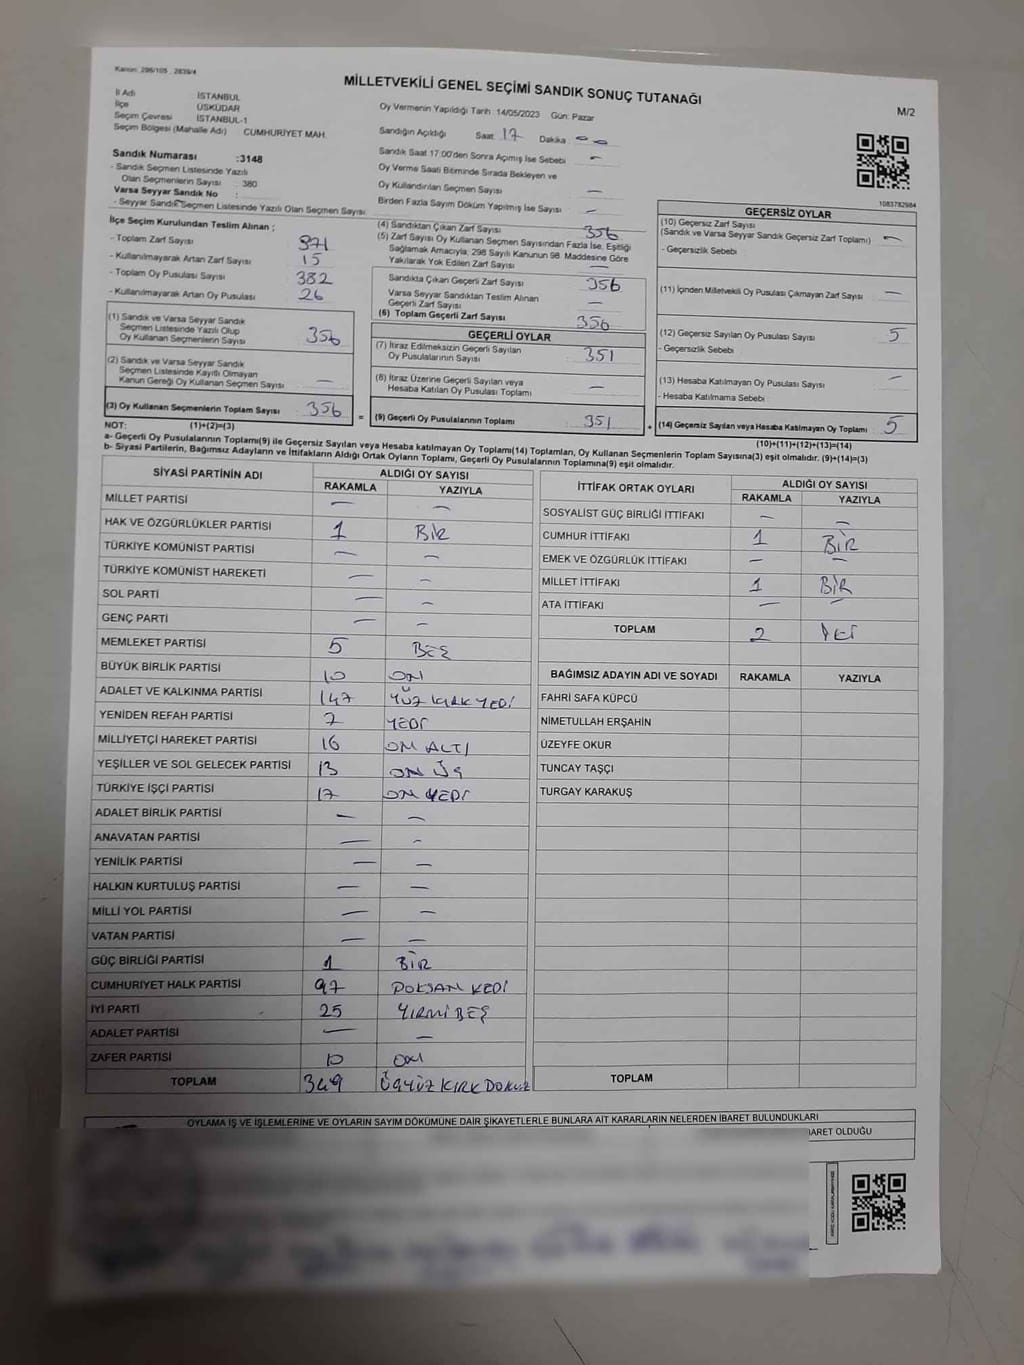 Kanun: 298/105 , 2839/4
MİLLETVEKİLİ GENEL SEÇİMİ SANDIK SONUÇ TUTANAĞI
M/2
İl Adı : İSTANBUL
İlçe : ÜSKÜDAR
Seçim Çevresi : İSTANBUL-1
Seçim Bölgesi (Mahalle Adı) CUMHURİYET MAH.
Sandık Numarası :3148
- Sandık Seçmen Listesinde Yazılı
Olan Seçmenlerin Sayısı : 380
Varsa Seyyar Sandık No :
- Seyyar Sandık Seçmen Listesinde Yazılı Olan Seçmen Sayısı
Oy Vermenin Yapıldığı Tarih :14/05/2023 Gün: Pazar
Sandığın Açıldığı Saat: 17 Dakika :
Sandık Saat 17:00'den Sonra Açımış İse Sebebi —
Oy Verme Saati Bitiminde Sırada Bekleyen ve
Oy Kullandırılan Seçmen Sayısı —
Birden Fazla Sayım Döküm Yapılmış İse Sayısı —
1083782984
İlçe Seçim Kurulundan Teslim Alınan ;
- Toplam Zarf Sayısı 371
- Kullanılmayarak Artan Zarf Sayısı 15
- Toplam Oy Pusulası Sayısı 382
- Kullanılmayarak Artan Oy Pusulası 26
(1) Sandık ve Varsa Seyyar Sandık
Seçmen Listesinde Yazılı Olup
Oy Kullanan Seçmenlerin Sayısı 356
(2) Sandık ve Varsa Seyyar Sandık
Seçmen Listesinde Kayıtlı Olmayan
Kanun Gereği Oy Kullanan Seçmen Sayısı —
(3) Oy Kullanan Seçmenlerin Toplam Sayısı 356 =
(4) Sandıktan Çıkan Zarf Sayısı 356
(5) Zarf Sayısı Oy Kullanan Seçmen Sayısından Fazla İse, Eşitliği
Sağlamak Amacıyla, 298 Sayılı Kanunun 98. Maddesine Göre
Yakılarak Yok Edilen Zarf Sayısı —
Sandıkta Çıkan Geçerli Zarf Sayısı 356
Varsa Seyyar Sandıktan Teslim Alınan
Geçerli Zarf Sayısı —
(6) Toplam Geçerli Zarf Sayısı 356
GEÇERLİ OYLAR
(7) İtiraz Edilmeksizin Geçerli Sayılan
Oy Pusulalarının Sayısı 351
(8) İtiraz Üzerine Geçerli Sayılan veya
Hesaba Katılan Oy Pusulası Toplamı —
(9) Geçerli Oy Pusulalarının Toplamı 351 +
GEÇERSİZ OYLAR
(10) Geçersiz Zarf Sayısı
(Sandık ve Varsa Seyyar Sandık Geçersiz Zarf Toplamı) —
- Geçersizlik Sebebi
(11) İçinden Milletvekili Oy Pusulası Çıkmayan Zarf Sayısı —
(12) Geçersiz Sayılan Oy Pusulası Sayısı 5
- Geçersizlik Sebebi
(13) Hesaba Katılmayan Oy Pusulası Sayısı —
- Hesaba Katılmama Sebebi
(14) Geçersiz Sayılan veya Hesaba Katılmayan Oy Toplamı 5
NOT: (1)+(2)=(3) (10)+(11)+(12)+(13)=(14)
a- Geçerli Oy Pusulalarının Toplamı(9) ile Geçersiz Sayılan veya Hesaba katılmayan Oy Toplamı(14) Toplamları, Oy Kullanan Seçmenlerin Toplam Sayısına(3) eşit olmalıdır. (9)+(14)=(3)
b- Siyasi Partilerin, Bağımsız Adayların ve İttifakların Aldığı Ortak Oyların Toplamı, Geçerli Oy Pusulalarının Toplamına(9) eşit olmalıdır.
SİYASİ PARTİNİN ADI ALDIĞI OY SAYISI
RAKAMLA YAZIYLA
MİLLET PARTİSİ — —
HAK VE ÖZGÜRLÜKLER PARTİSİ 1 BİR
TÜRKİYE KOMÜNİST PARTİSİ — —
TÜRKİYE KOMÜNİST HAREKETİ — —
SOL PARTİ — —
GENÇ PARTİ — —
MEMLEKET PARTİSİ 5 BEŞ
BÜYÜK BİRLİK PARTİSİ 10 ON
ADALET VE KALKINMA PARTİSİ 147 YÜZ KIRK YEDİ
YENİDEN REFAH PARTİSİ 7 YEDİ
MİLLİYETÇİ HAREKET PARTİSİ 16 ON ALTI
YEŞİLLER VE SOL GELECEK PARTİSİ 13 ON ÜÇ
TÜRKİYE İŞÇİ PARTİSİ 17 ON YEDİ
ADALET BİRLİK PARTİSİ — —
ANAVATAN PARTİSİ — —
YENİLİK PARTİSİ — —
HALKIN KURTULUŞ PARTİSİ — —
MİLLİ YOL PARTİSİ — —
VATAN PARTİSİ — —
GÜÇ BİRLİĞİ PARTİSİ 1 BİR
CUMHURİYET HALK PARTİSİ 97 DOKSAN YEDİ
İYİ PARTİ 25 YİRMİ BEŞ
ADALET PARTİSİ — —
ZAFER PARTİSİ 10 ON
TOPLAM 349 ÜÇYÜZ KIRK DOKUZ
İTTİFAK ORTAK OYLARI ALDIĞI OY SAYISI
RAKAMLA YAZIYLA
SOSYALİST GÜÇ BİRLİĞİ İTTİFAKI — —
CUMHUR İTTİFAKI 1 BİR
EMEK VE ÖZGÜRLÜK İTTİFAKI — —
MİLLET İTTİFAKI 1 BİR
ATA İTTİFAKI — —
TOPLAM 2 İKİ
BAĞIMSIZ ADAYIN ADI VE SOYADI RAKAMLA YAZIYLA
FAHRİ SAFA KÜPCÜ
NİMETULLAH ERŞAHİN
ÜZEYFE OKUR
TUNCAY TAŞÇI
TURGAY KARAKUŞ
TOPLAM
OYLAMA İŞ VE İŞLEMLERİNE VE OYLARIN SAYIM DÖKÜMÜNE DAİR ŞİKAYETLERLE BUNLARA AİT KARARLARIN NELERDEN İBARET BULUNDUKLARI
BARET OLDUĞU